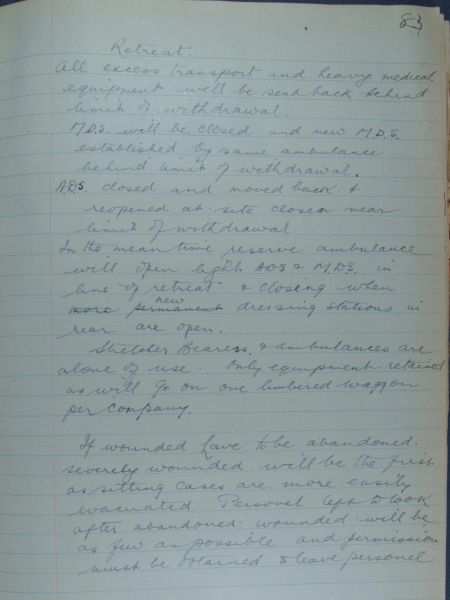 83
Retreat.
All excess transport and heavy medical
equipment will be sent back behind
limit of withdrawal.
M.D.S. will be closed and new M.D.S.
established by same ambulance
behind limit of withdrawal.
A.D.S. closed and moved back &
reopened at site chosen near
limit of withdrawal
In the mean time reserve ambulance
will open light ADS & M.D.S. in
line of retreat & closing when
new
more permanent dressing stations in
rear are open.
Stretcher Bearers & ambulances are
alone of use. Only equipment retained
as will go on one limbered waggon
per company.
If wounded have to be abandoned.
severely wounded will be the first
as sitting cases are more easily
evacuated Personel left to look
after abandoned wounded will be
as few as possible and permission
must be obtained to leave personel